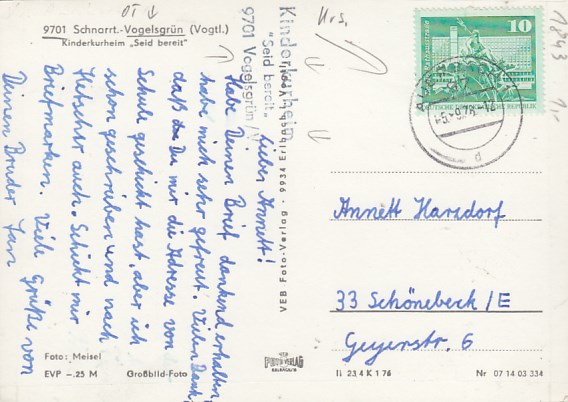 9701 Schnarrt.-Vogelsgrün (Vogtl.)
Kinderkurheim "Seid bereit"
Kinderkurheim
"Seid bereit"
9701 Vogelsgrün
Lieber Annett!
Habe Deinen Brief dankend erhalten
habe mich sehr gefreut. Vielen Dank
daß Du mir die Adresse von
Schule geschickt hast, aber ich
schon geschrieben und nach
auch. Schickt mir
Briefmarken. Viele Grüße von
Deinem Bruder Jan
Foto: Meisel
EVP –.25 M Großbild-Foto
VEB Foto-Verlag · 9934 Erlbach
FOTO VERLAG
Urs.
1843
1,-
10
Rathausstraße
DEUTSCHE DEMOKRATISCHE REPUBLIK
Annett Harzdorf
33 Schönebeck/E
Geyerstr. 6
II 23,4 K 1 76 Nr 07 14 03 334